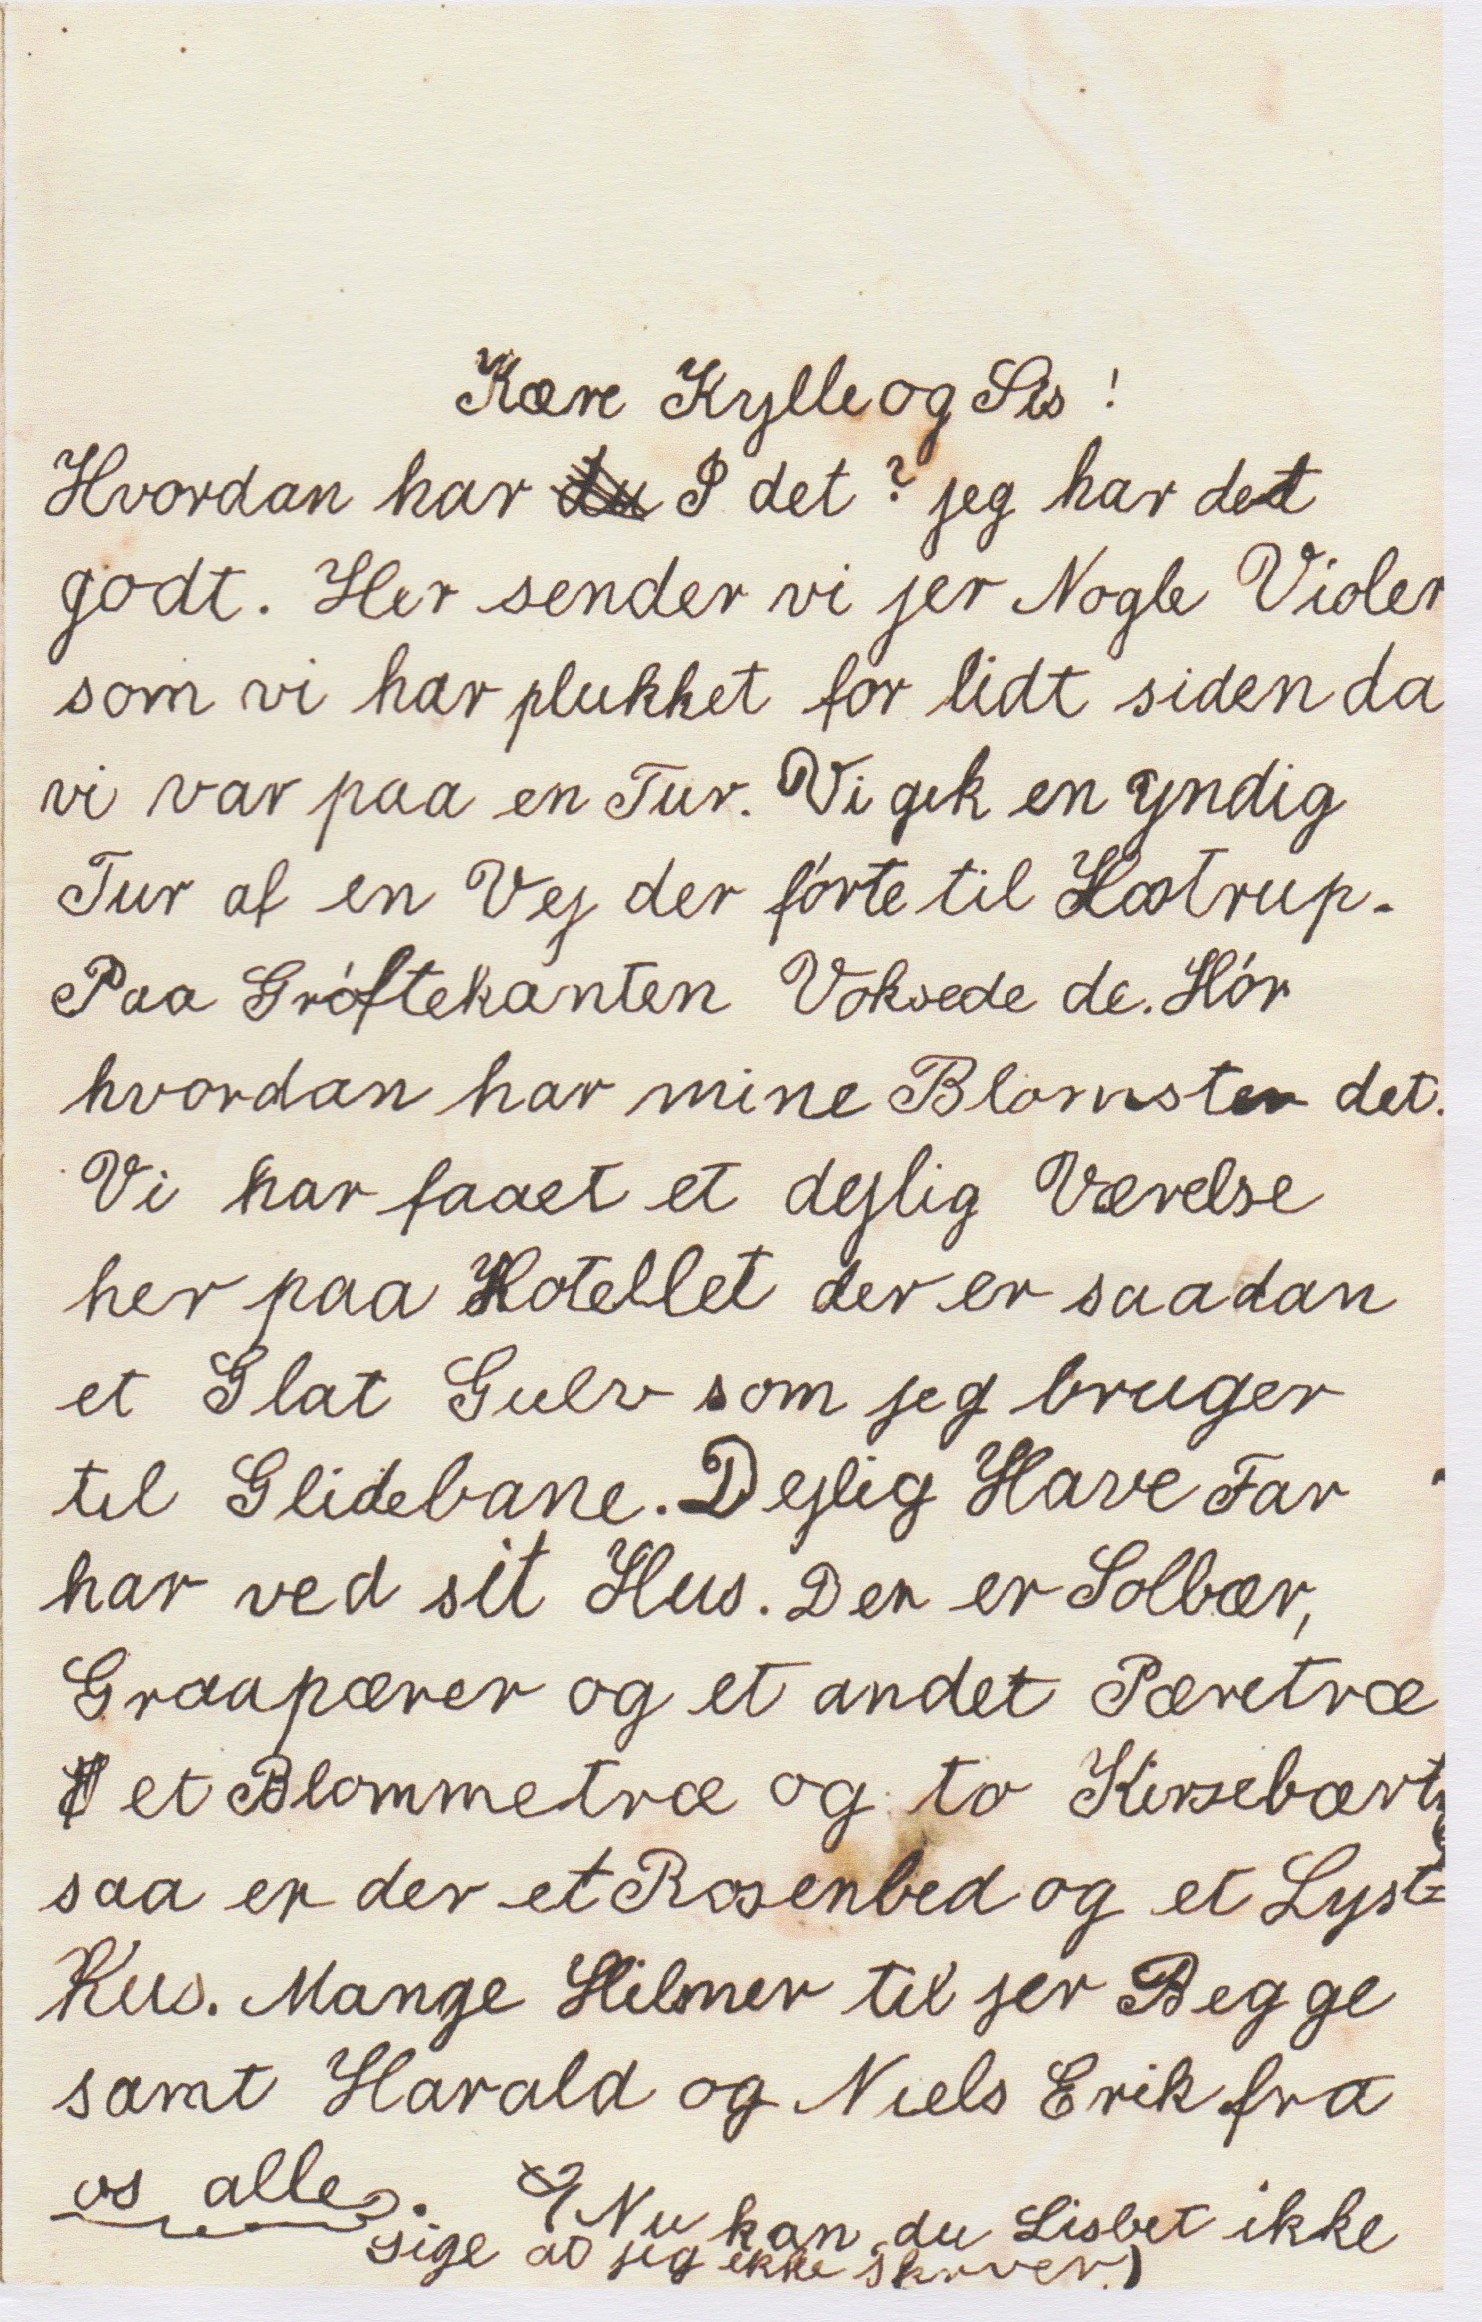 Kære Kylle og Sis!
Hvordan har du I det? jeg har det
godt. Her sender vi jer Nogle Violer
som vi har plukket for lidt siden da
vi var paa en Tur. Vi gik en yndig
Tur af en Vej der førte til Hæstrup.
Paa Grøftekanten Voksede de. Hør
hvordan har mine Blomster det.
Vi har faaet et dejlig Værelse
her paa Hotellet der er saadan
et Glat Gulv som jeg bruger
til Glidebane. Dejlig Have Far
har ved sit Hus. Der er Solbær,
Graapærer og et andet Pæretræ
et Blommetræ og to Kirsebært
saa er der et Rosenbed og et Lyst=
Hus. Mange Hilsner til jer Begge
samt Harald og Niels Erik fra
os alle.
Nu kan du Lisbet ikke
sige at jeg ikke skrver!)